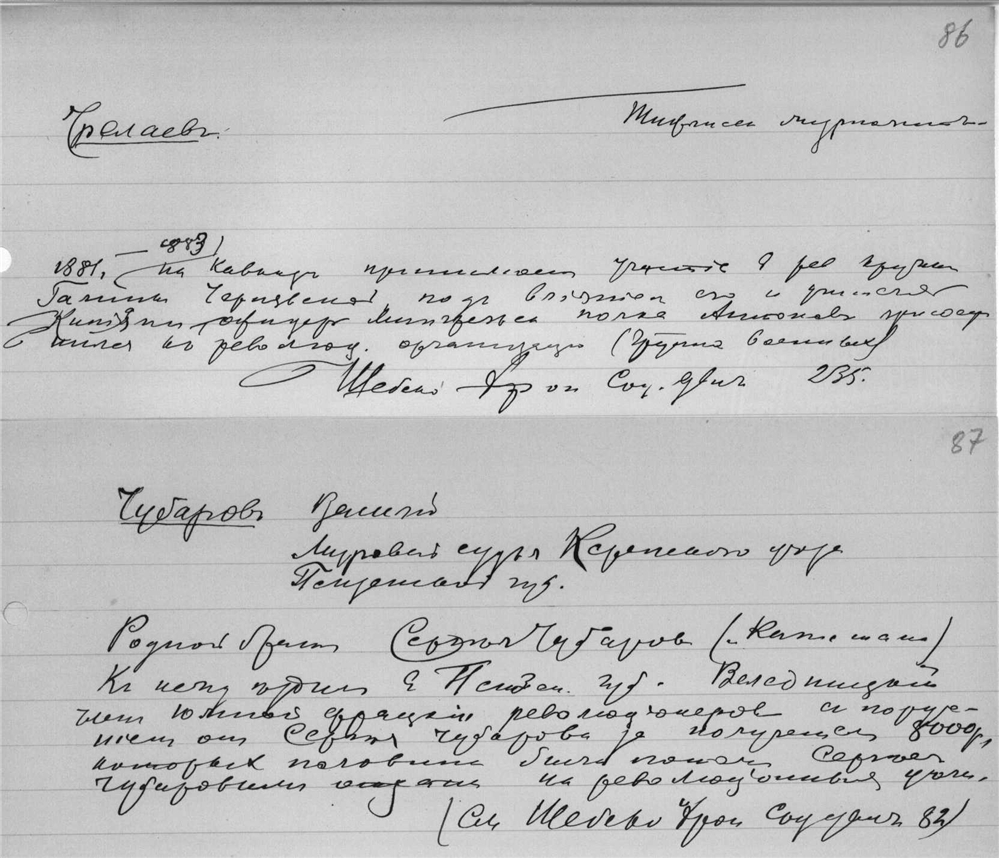 86
Чрелаевъ.
Тифлисск журналистъ
— 1883)
1881. на Кавказѣ принимает участіе в рев кружке
Галины Чернявской, подъ вліяніем его и
офицеръ Мингрельск полка Антоновъ присоед
нился къ революц. организаціи (Группа военных)
Шебеко Хр ои Соц. Движ 235.
87
Чубаровъ
Мировой судья Керенского уезда
Пензенской губ.
Родной брат Сергея Чубаров (и Капитана)
К нему ездил в Пензен. губ. Веледницкий
член Южной фракции революціонеров с поруче-
нием от Сергея Чубарова за получением 8000р,
которых половина была потом Сергеем
Чубаровым отдана на революціонныя цели.
(См Шебеко Хрон Соц движ 82)